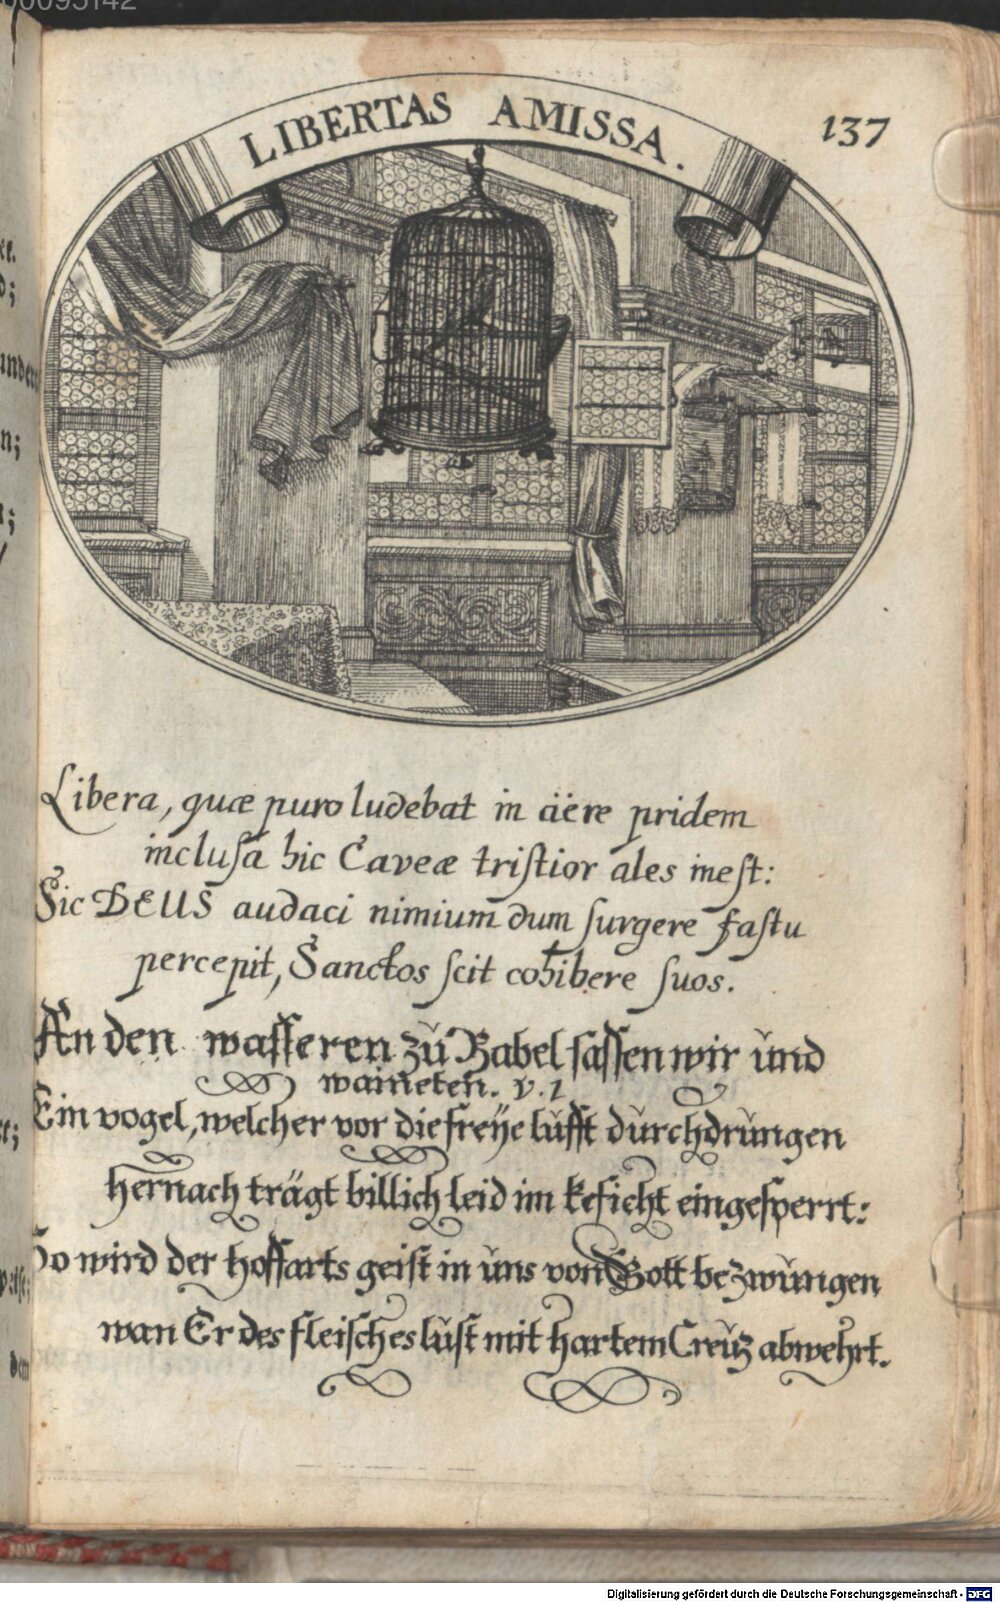 00095142
LIBERTAS AMISSA.
137
Libera, quæ puro ludebat in äëre pridem
inclusa hic Caveæ tristior ales inest:
Sic DEUS audaci nimium dum surgere fastu
percepit, Sanctos scit cohibere suos.
An den wasseren zŭ Babel sassen wir ŭnd
waineten. v. 1
Ein vogel, welcher vor die freÿe lŭfft dŭrchdrŭngen
hernach trägt billich leid im kesicht eingesperrt:
So wird der hoffarts geist in ŭns von Gott bezwŭngen
wan Er des fleisches lŭst mit hartem Creŭz abwehrt.
Digitalisierung gefördert durch die Deutsche Forschungsgemeinschaft - DFG